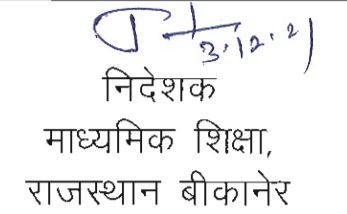 3.12.21
निदेशक
माध्यमिक शिक्षा,
राजस्थान बीकानेर